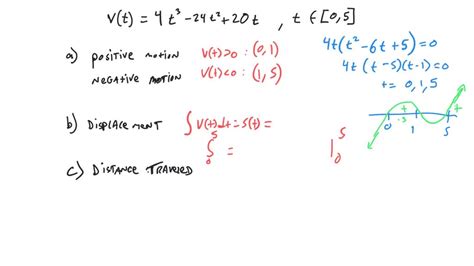 v(t) = 4t³ - 24t² + 20t , t ∈ [0,5]
a) positive motion v(t)>0 : (0,1)
negative motion v(t)<0 : (1,5)
4t(t² - 6t + 5) = 0
4t(t - 5)(t - 1) = 0
t = 0, 1, 5
+ +
0 1 5
b) Displacement ∫ v(t) dt = s(t) =
∫₀⁵ = |₀⁵
c) Distance Traveled